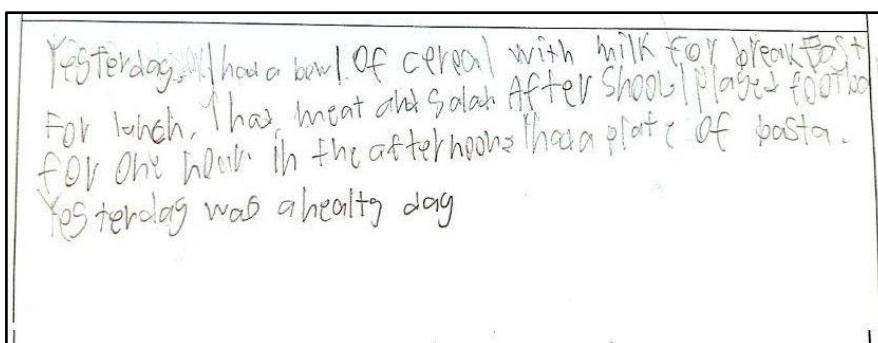 Yesterday, I had a bowl of cereal with milk for breakfast
For lunch, I had meat and salad After shool I played footba
for one hour. in the afternoons I had a plate of basta.
Yesterday was a healty day